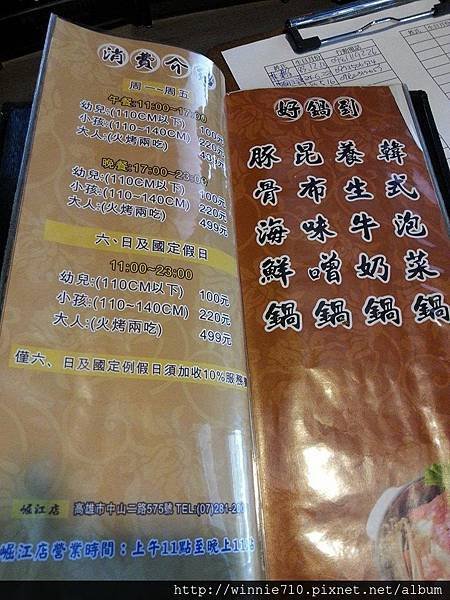 消費介紹
周一~周五
午餐:11:00~17:00
幼兒:(110CM以下) 100元
小孩:(110~140CM) 220元
大人:(火烤兩吃) 499元
晚餐:17:00~23:00
幼兒:(110CM以下) 100元
小孩:(110~140CM) 220元
大人:(火烤兩吃) 499元
六、日及國定假日
11:00~23:00
幼兒:(110CM以下) 100元
小孩:(110~140CM) 220元
大人:(火烤兩吃) 499元
僅六、日及國定例假日須加收10%服務
堀江店 高雄市中山二路575號 TEL:(07)281-20
堀江店營業時間：上午11點至晚上11
好鍋到
韓式泡菜鍋
養生牛奶鍋
昆布味噌鍋
豚骨海鮮鍋
http://winnie710.pixnet.net/album